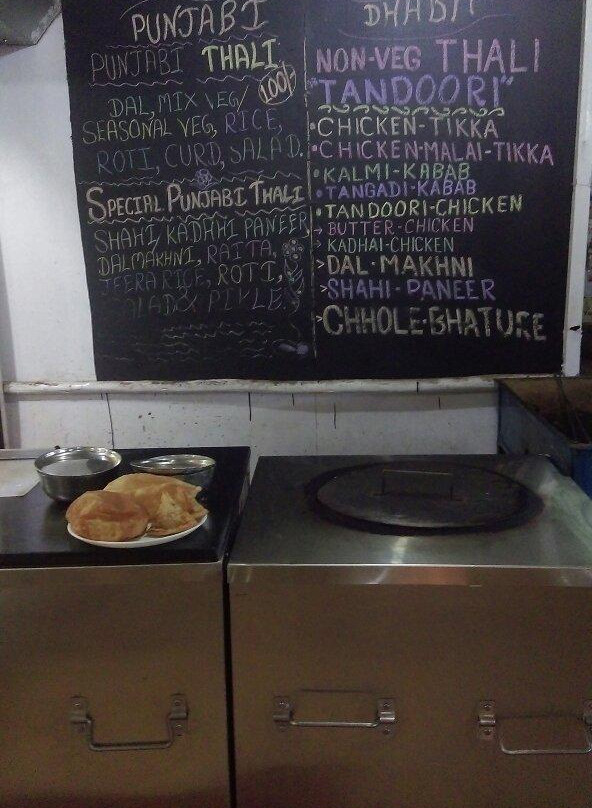 PUNJABI DHABA
PUNJABI THALI
100/-
DAL, MIX VEG/
SEASONAL VEG, RICE,
ROTI, CURD, SALAD.
SPECIAL PUNJABI THALI
SHAHI/KADHHI PANEER
DALMAKHNI, RAITA,
JEERA RICE, ROTI,
SALAD &
NON-VEG THALI
"TANDOORI"
•CHICKEN-TIKKA
•CHICKEN-MALAI-TIKKA
•KALMI-KABAB
•TANGADI-KABAB
•TANDOORI-CHICKEN
→BUTTER-CHICKEN
→KADHAI-CHICKEN
>DAL-MAKHNI
>SHAHI-PANEER
>CHHOLE-BHATURE